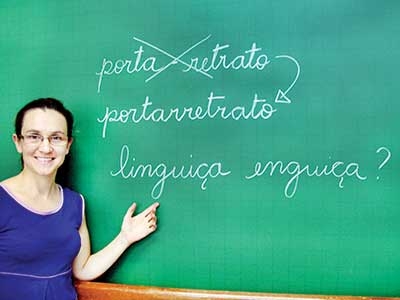 porta-retrato
portarretrato
linguiça enguiça?